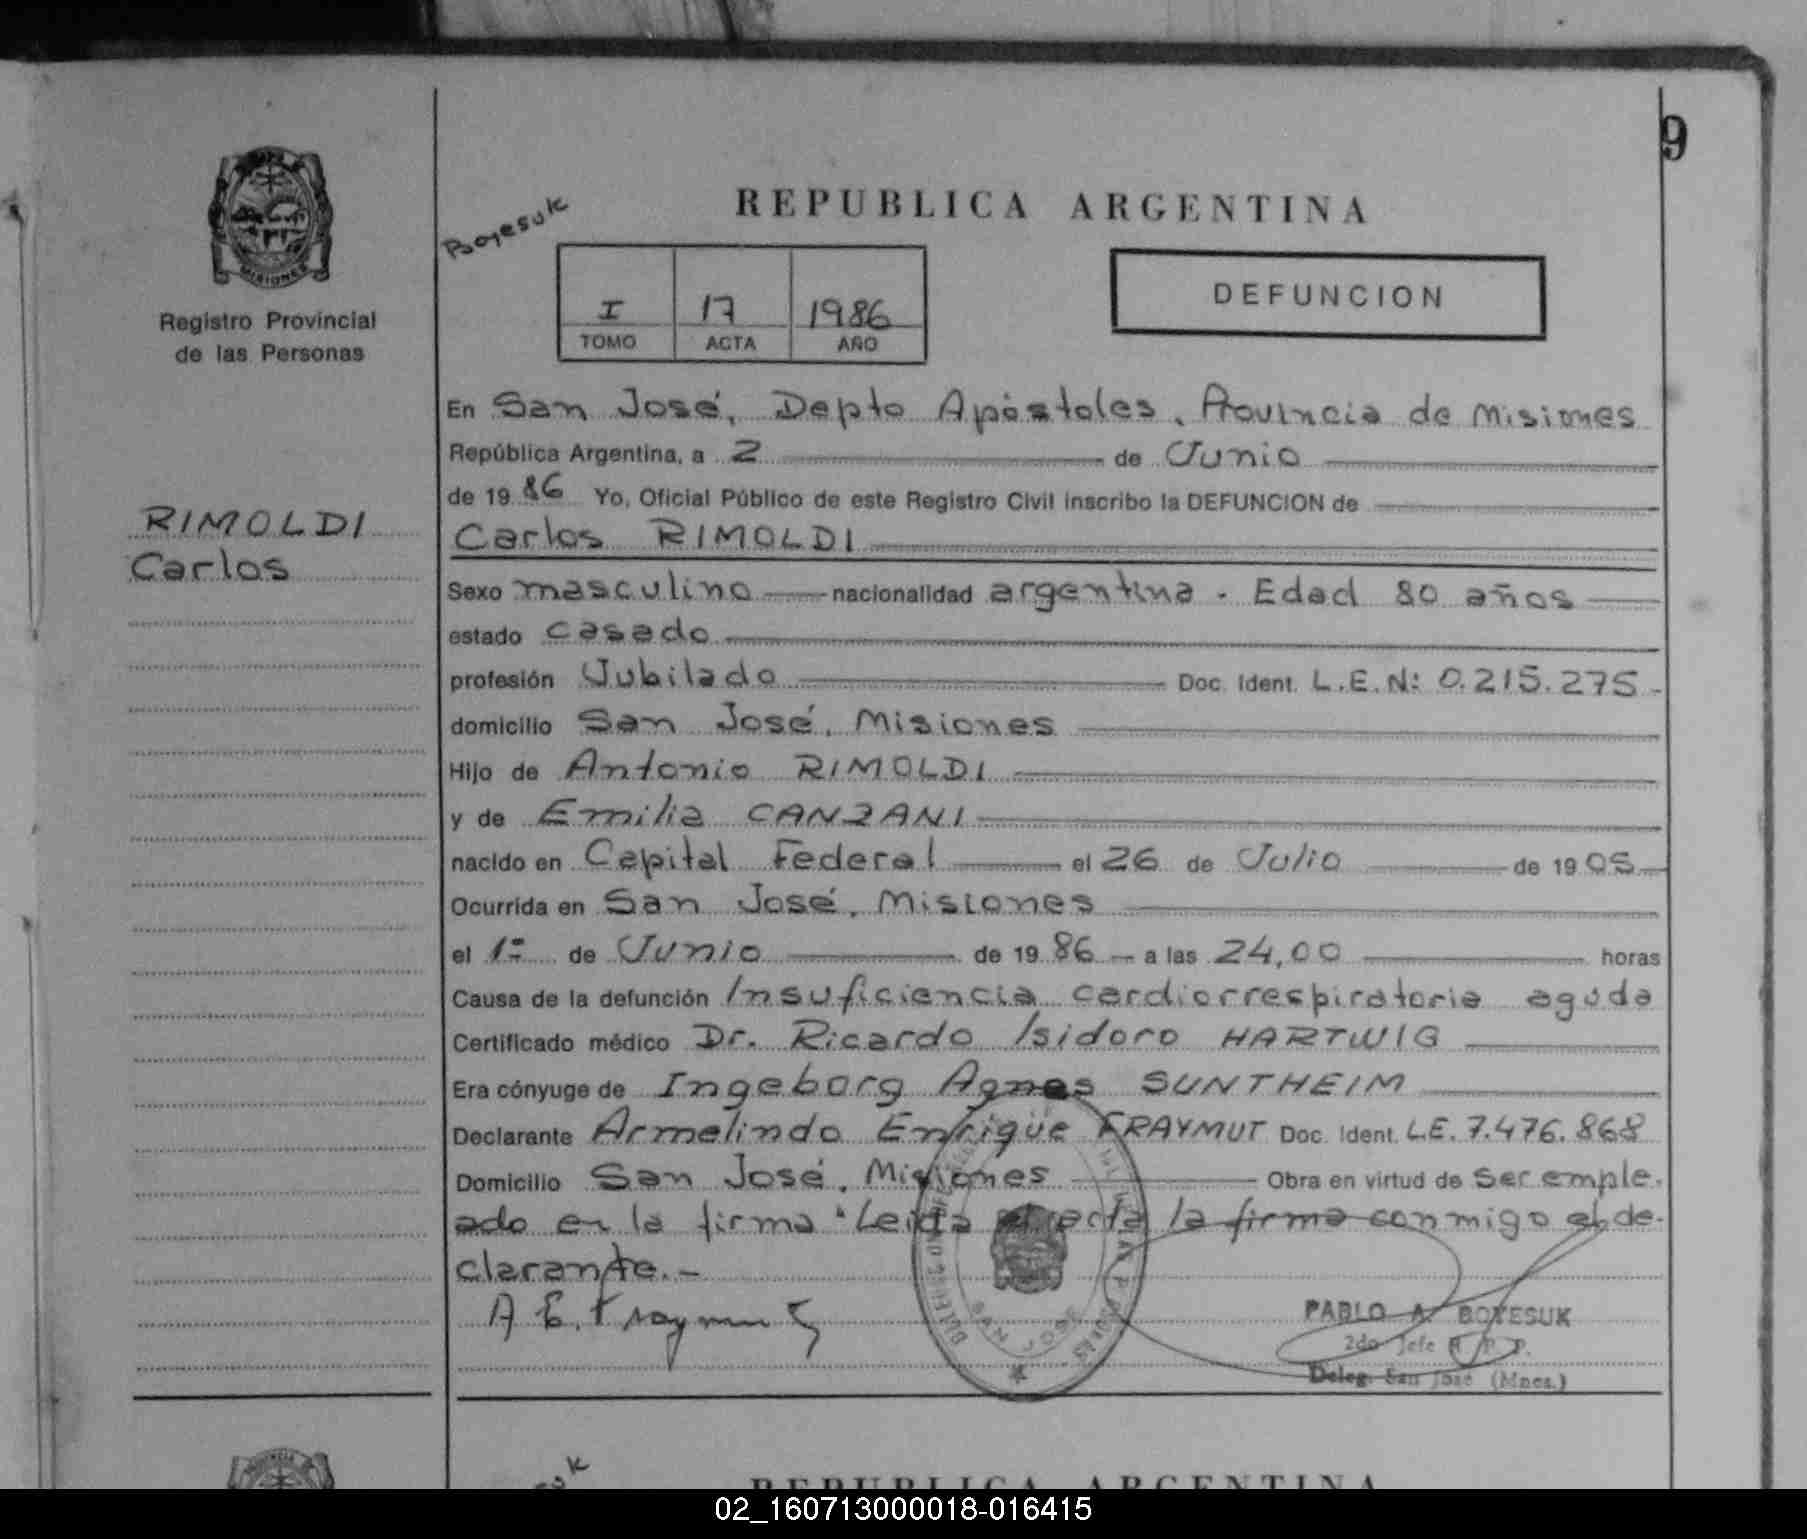 9
MISIONES
Registro Provincial
de las Personas
RIMOLDI
Carlos
Boyesuk
REPUBLICA ARGENTINA
I 17 1986
TOMO ACTA AÑO
DEFUNCION
En San José, Depto Apóstoles, Provincia de Misiones
República Argentina, a 2 de Junio
de 19 86 Yo, Oficial Público de este Registro Civil inscribo la DEFUNCION de
Carlos RIMOLDI
Sexo masculino nacionalidad argentina. Edad 80 años
estado casado
profesión Jubilado Doc. Ident. L.E.N: 0.215.275-
domicilio San José, Misiones
Hijo de Antonio RIMOLDI
y de Emilia CANZANI
nacido en Capital Federal el 26 de Julio de 19 05
Ocurrida en San José, Misiones
el 1º de Junio de 19 86 a las 24,00 horas
Causa de la defunción Insuficiencia cardiorrespiratoria aguda
Certificado médico Dr. Ricardo Isidoro HARTWIG
Era cónyuge de Ingeborg Agnes SUNTHEIM
Declarante Armelindo Enrique FRAYMUT Doc. Ident. L.E. 7.476.868
Domicilio San José, Misiones Obra en virtud de ser emple-
ado en la firma "Leida el acta la firma conmigo el de-
clarante.-
A E. Fraymut
SAN JOSE
PABLO A. BOYESUK
2do Jefe R. P. P.
Deleg. San José (Mnes.)
REPUBLICA ARGENTINA
02_160713000018-016415